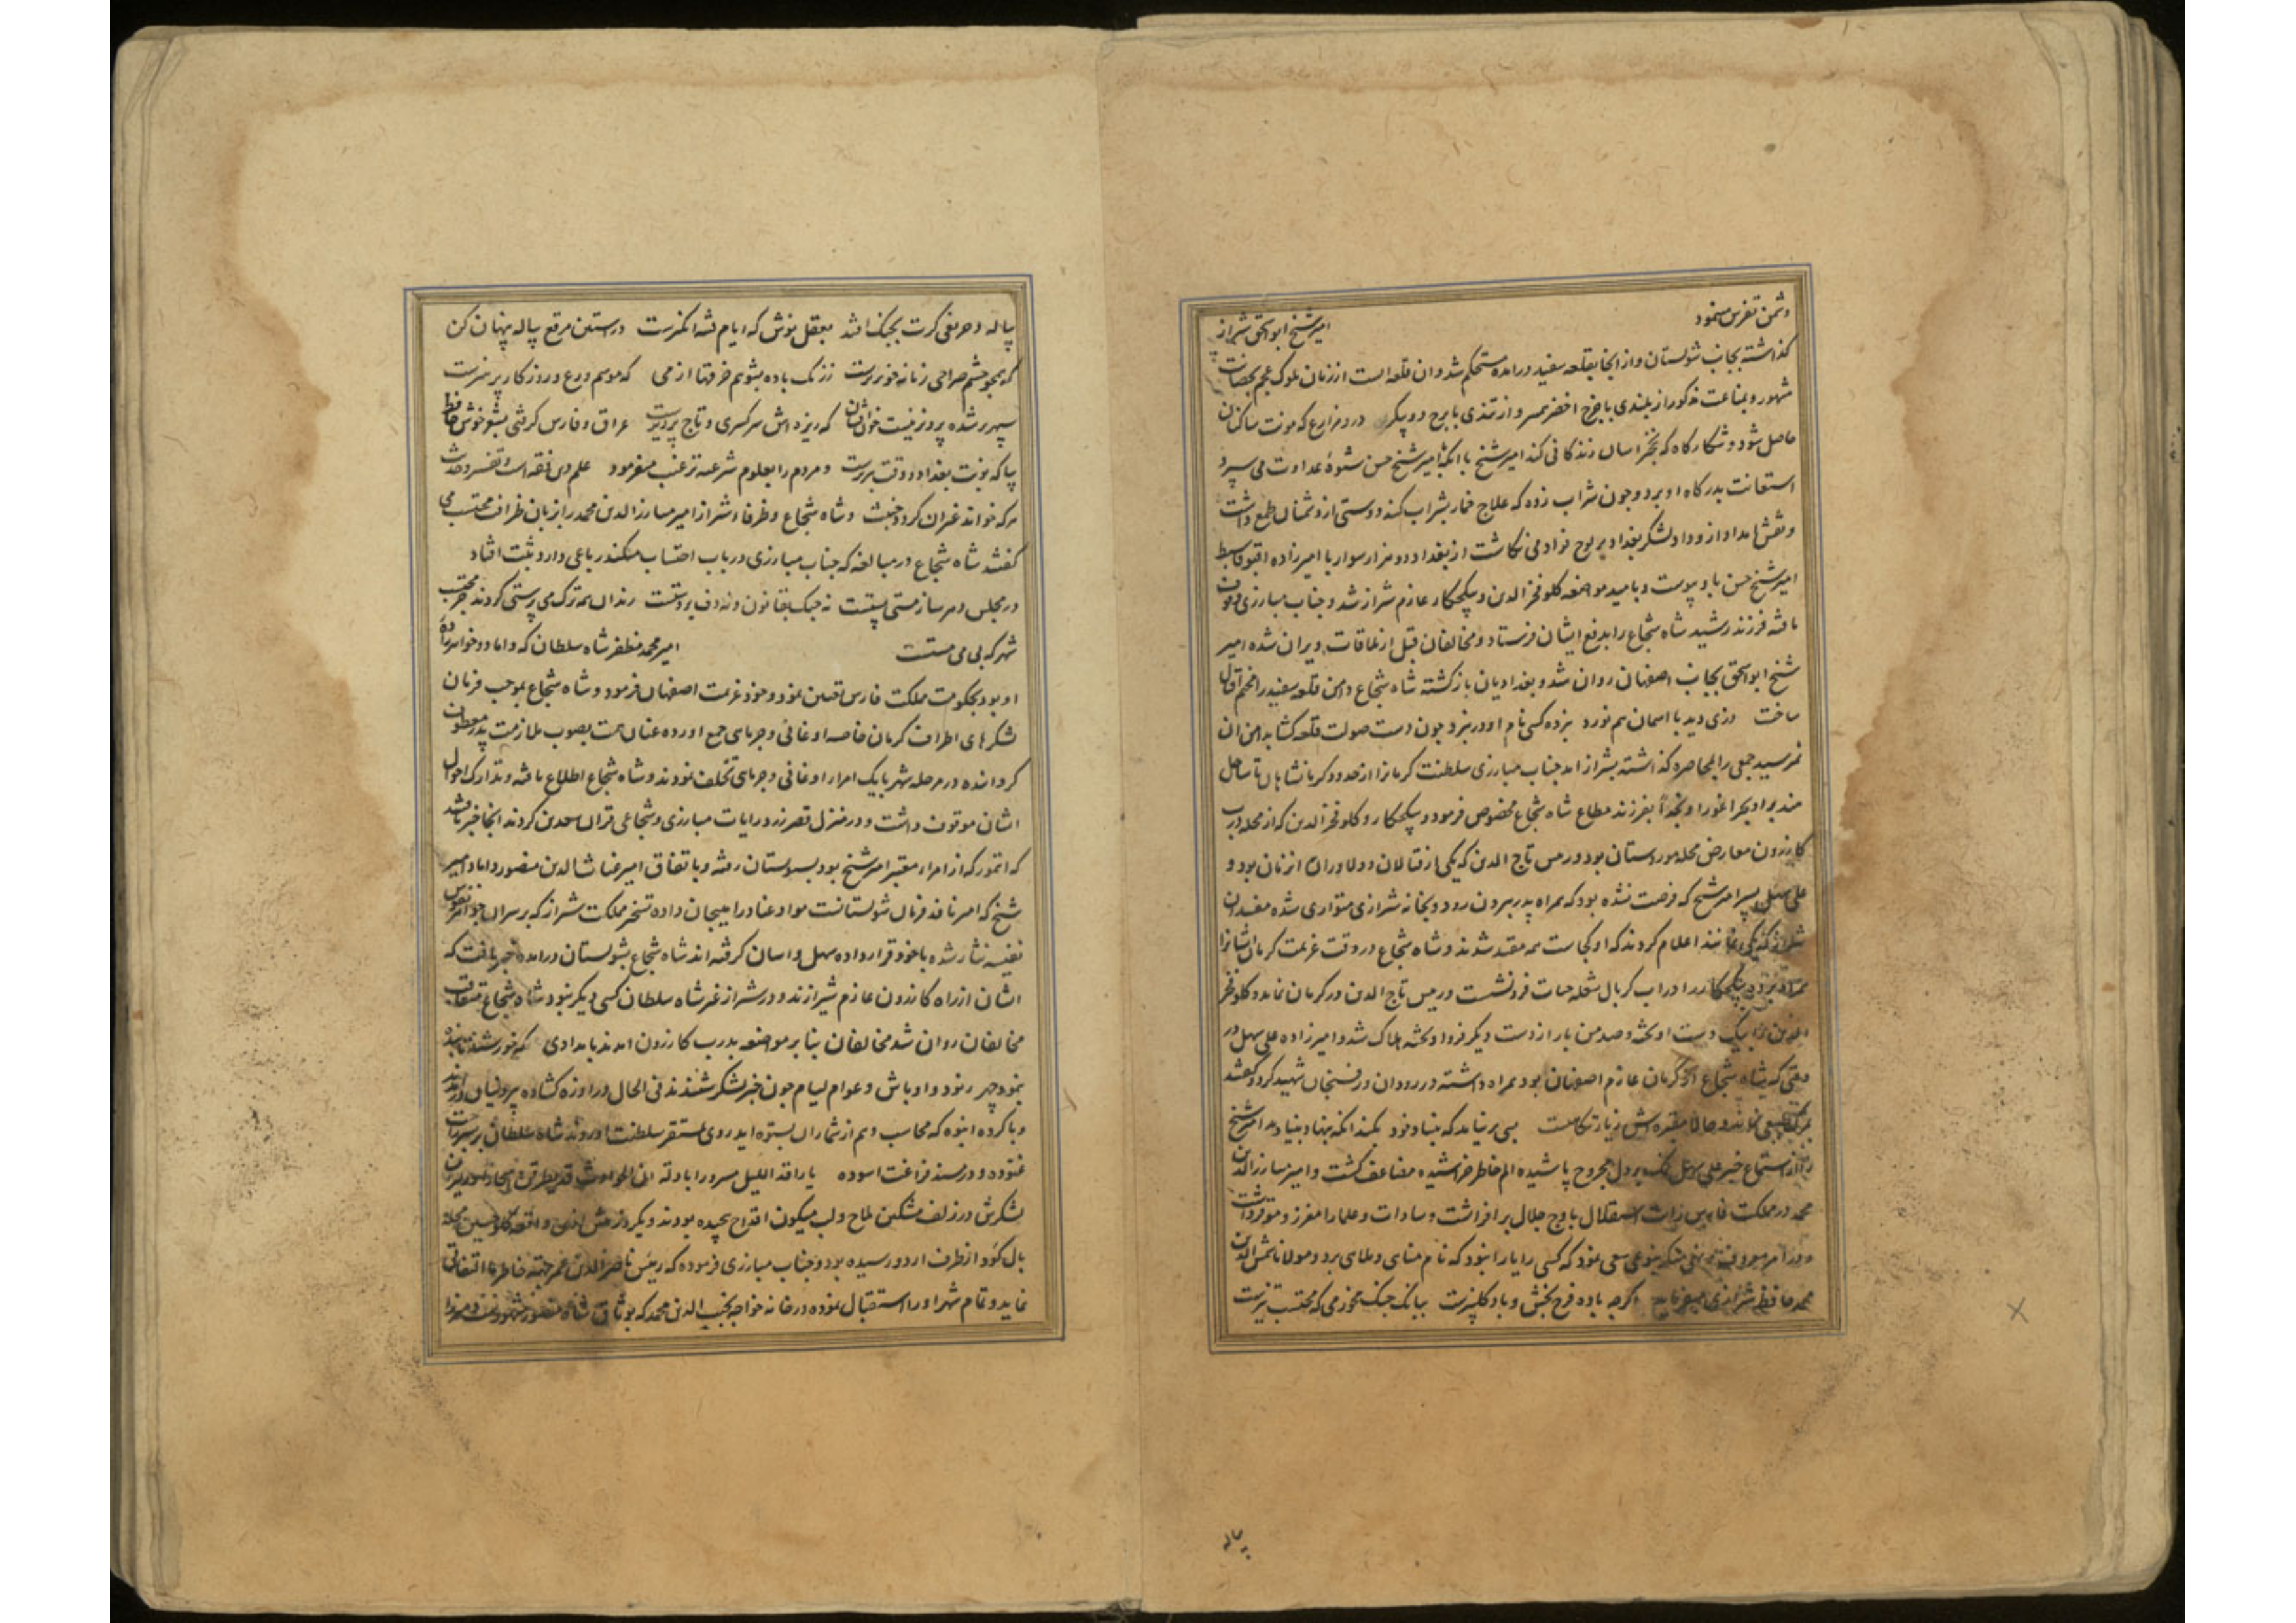 دشمن تفرس مینمود امیر شیخ ابو اسحق شیراز
کذاشته بجانب شولستان و از انجا بقلعه سفید درامده مستحکم شد و ان قلعه است از زمان ملوک عجم بحصانت
مشهور و بمناعت مذکور از بلندی با چرخ اخضر همسر و از تندی با برج دو پیکر در و مزارع که مونت ساکنان
حاصل شود و شکارکاه که نخجر اسان زندکانی کند امیر شیخ با انکه با امیر شیخ حسن شیوهٔ عداوت می سپرد
استعانت بدرکاه او برد و چون شراب زده که علاج خمار بشراب کند دوستی از دشمنان طمع داشت
و نقش امداد از وداد لشکر بغداد بر لوح فواد می نکاشت از بغداد دو هزار سوار با امیرزاده اقبوقا سبط
امیر شیخ حسن باو پیوست و بامید مواضعه کلو فخر الدین و پیکجکار عازم شیراز شد و جناب مبارزی وقوف
یافته فرزند رشید شاه شجاع را بدفع ایشان فرستاد و مخالفان قبل از ملاقات ویران شده امیر
شیخ ابو اسحق بجانب اصفهان روان شد و بغدادیان بازکشته شاه شجاع دامن قلعه سفید را مخیم اقبال
ساخت دزی دید با اسمان هم نورد نبرده کسی نام او در نبرد چون دست صولت قلعه کشا بدامن ان
نمیرسید جمعی را بمحاصره کذاشته بشیراز امد جناب مبارزی سلطنت کرمانرا از حدود کرمانشاهان تا ساحل
بفرزند مطاع شاه شجاع مخصوص فرمود و پیکجکار و کلو فخر الدین که از محله درب
کازرون معارض محله موردستان بود و رییس تاج الدین که یکی از قتالان و دلاوران ان زمان بود و
علی سهل پسر امیر شیخ که فرصت نشده بود که همراه پدر بیرون رود و بخانه شیرازی متواری شده مفسدان
اعلام کردند که او کجاست همه مقید شدند و شاه شجاع در وقت عزیمت کرمان ایشانرا
همراه ببرد پیکجکار را در اب کربال شعله حیات فرو نشست و رییس تاج الدین در کرمان نماند و کلو فخر
الدین دست اویخته و صد من بار از دست دیکر فرو اویخته هلاک شد و امیرزاده علی سهل در
وقتی که شاه شجاع از کرمان عازم اصفهان بود همراه داشته در رودان و رفسنجان شهید کرد و کفتند
بمرک طبیعی نماند و حالا مقبره ش زیارتکاهست بسی بر نیاید که بنیاد خود بکند انکه بنهاد بنیاد بد امیر شیخ
را از استماع خبر علی سهل نمک بر دل مجروح پاشیده الم خاطر خراشیده مضاعف کشت و امیر مبارز الدین
محمد در مملکت فارس رایت استقلال باوج جلال بر افراشت و سادات و علما را معزز و موقر داشت
و در امر معروف و نهی منکر بنوعی سعی نمود که کسی را یارا نبود که نام مناهی و ملاهی برد و مولانا شمس الدین
محمد حافظ شیرازی میفرماید اکرچه باده فرح بخش و باد کلبیزست ببانک چنک مخور می که محتسب تیزست
پیاله
پیاله و حریفی کرت بچنک افتد بعقل نوش که ایام فتنه انکیزست در استین مرقع پیاله پنهان کن
که همچو چشم صراحی زمانه خونریزست زرنک باده بشویم خرقها از می که موسم ورع و روزکار پرهیزست
سپهر بر شده پرویزنیست خون افشان که ریزه اش سر کسری و تاج پرویزست عراق و فارس کرفتی بشعر خوش حافظ
بیا که نوبت بغداد و وقت تبریزست و مردم را بعلوم شرعیه ترغیب میفرمود علم دین فقه است و تفسیر و حدیث
هرکه خواند غیر ان کردد خبیث و شاه شجاع و ظرفاء شیراز امیر مبارز الدین محمد را بزبان ظرافت محتسب می
کفتند شاه شجاع در مبالغه که جناب مبارزی در باب احتساب میکند رباعی دارد ثبت افتاد
در مجلس دهر ساز مستی پستست نه چنک بقانون و نه دف بر دستست رندان همه ترک می پرستی کردند جز محتسب
شهر که بی می مستست امیر محمد مظفر شاه سلطان که داماد و خواهرزاده
او بود بحکومت مملکت فارس تعیین نمود و خود عزیمت اصفهان فرمود و شاه شجاع بموجب فرمان
لشکرهای اطراف کرمان خاصه اوغانی و جرمایی جمع اورده عنان همت بصوب ملازمت پدر معطوف
کردانده در مرحله شهر بابک امراء اوغانی و جرمایی تخلف نمودند و شاه شجاع اطلاع یافته و تدارک احوال
ایشان موقوف داشت و در منزل قصر زرد رایات مبارزی و شجاعی قران سعدین کردند انجا خبر یافتند
که اتمور که از امراء معتبر امیر شیخ بود بلرستان رفته و باتفاق امیر غیاث الدین منصور داماد امیر
شیخ که امیر نافذ فرمان شولستانست مواد عناد را هیجان داده تسخیر مملکت شیراز که بر سر ان جواهر نفوس
نفیسه نثار شده با خود قرار داده سهل و اسان کرفته اند شاه شجاع بشولستان درامده خبر یافت که
ایشان از راه کازرون عازم شیرازند و در شیراز غیر شاه سلطان کسی دیکر نبود شاه شجاع متعاقب
مخالفان روان شد مخالفان بنا بر مواضعه بدرب کازرون امدند بامدادی که خورشید تابنده
بنمود چهر رنود و اوباش و عوام لیام چون خبر لشکر شنیدند فی الحال دروازه کشاده
و با کرده انبوه که محاسب وهم از شمار ان بستوه اید روی بمستقر سلطنت اوردند شاه سلطان بر سریر راحت
غنوده و در مسند فراغت اسوده یا راقد اللیل مسرورا باوله ان الحوادث قد یطرقن اسحارا
لشکرش در زلف مشکین ملاح و لب میکون اقداح پیچیده بودند
از طرف اردو رسیده بود و جناب مبارزی فرموده که رییس ناصر الدین عمر
نماید و تمام شهر او را استقبال نموده در خانه خواجه نجیب الدین محمد که بوثاق شاه منصور مشهورست